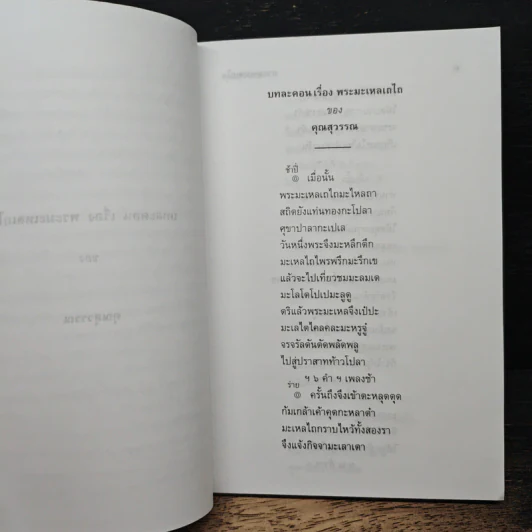 บทละคอนเรื่อง พระมะเหลเถไถ
ของ
คุณสุวรรณ
ช้าปี่
๏ เมื่อนั้น
พระมะเหลเถไถมะไหลถา
สถิตยังแท่นทองกะโปลา
ศุขาปาลากะเปเล
วันหนึ่งพระจึงมะหลึกตึก
มะเหลไถไพรพรึกมะรึกเข
แล้วจะไปเที่ยวชมมะลมเต
มะโลโตโปเปมะลูตู
ตริแล้วพระมะเหลจึงเป๋ปะ
มะเลไตไคลคละมะหรูจู๋
จรจรัลตันตัดพลัดพลู
ไปสู่ปราสาทท้าวโปลา
ฯ ๖ คำ ฯ เพลงช้า
ร่าย
๏ ครั้นถึงจึงเข้าตะหลุดตุด
ก้มเกล้าเค้าคุดกะหลาต๋า
มะเหลไถกราบไหว้ทั้งสองรา
จึงแจ้งกิจจามะเลาเตา